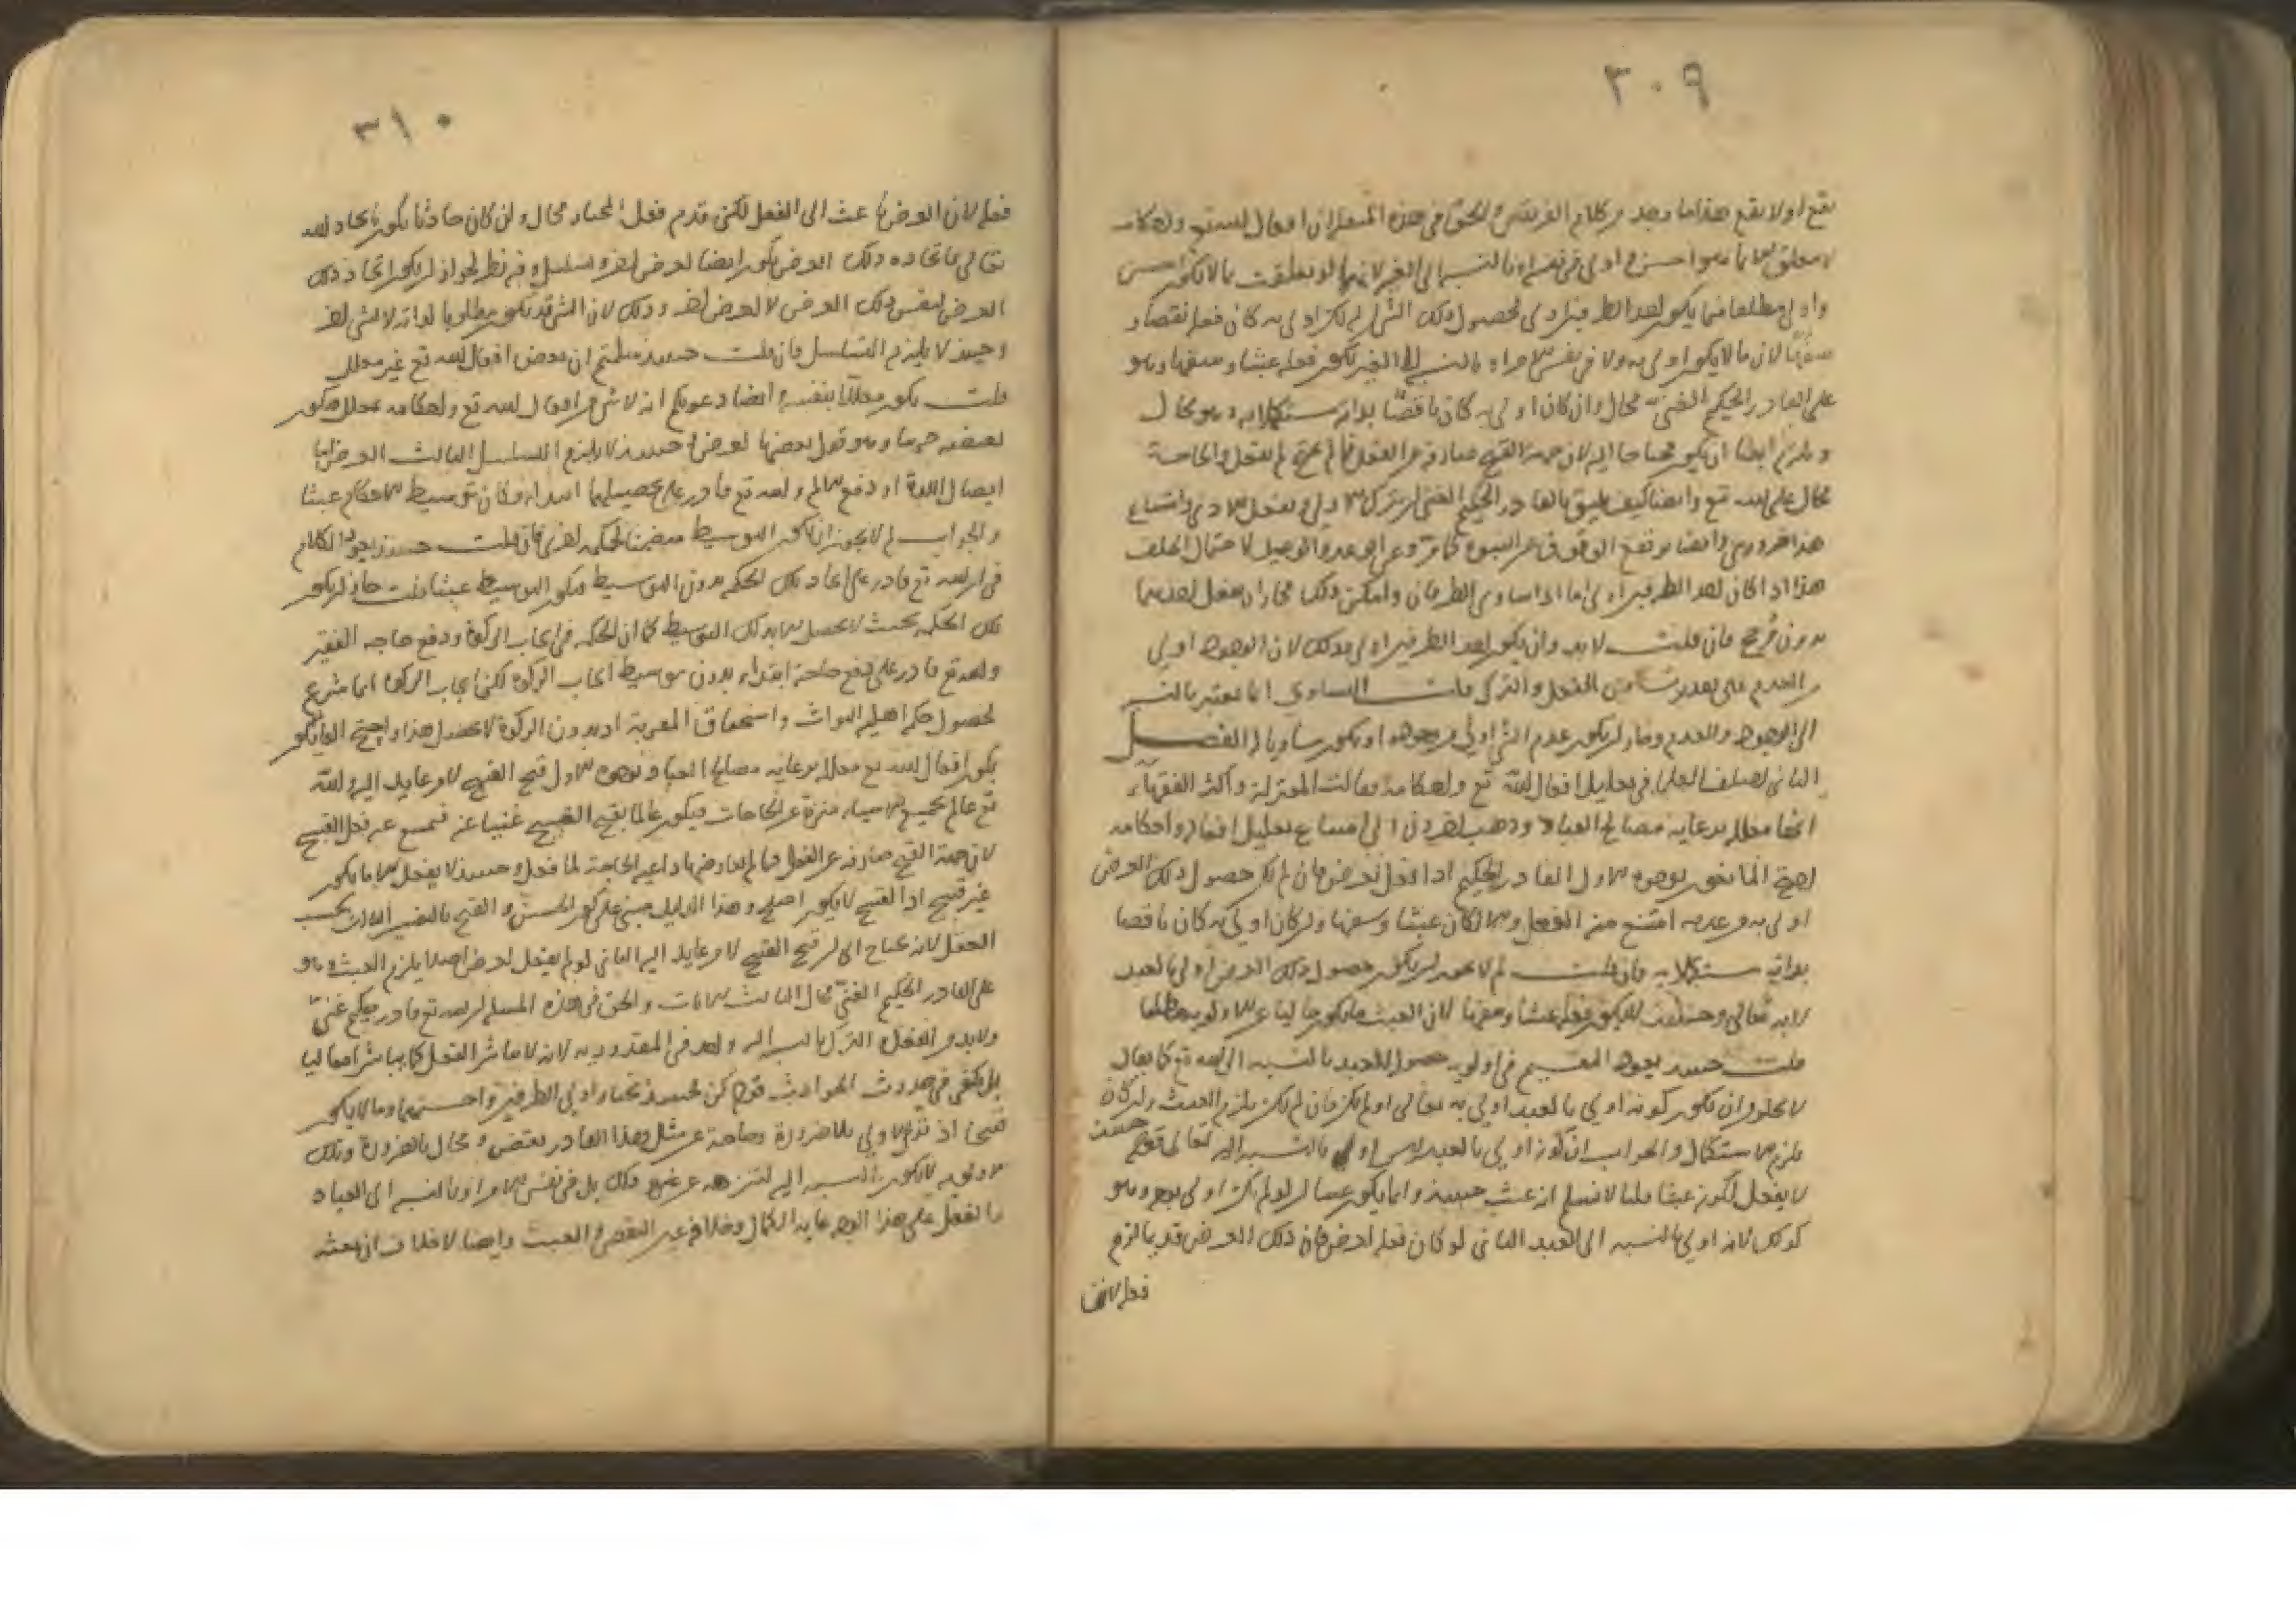 ٣٠٩
يقع او لا يقع هذا ما وجد من كلام الفريقين والحق في هذه المسئلة ان افعال الله تع واحكامه
لا يتعلق الا بما هو احسن واولى في نفس الامر او بالنسبة الى الغير لانها لو تعلقت بما لا يكون احسن
واولى مطلقا فما يكون احد الطرفين اولى لحصول ذلك الشي ان لم يكن اولى به كان فعله نقصا و
سفها لان ما لا يكون اولى به ولا في نفس الامر او بالنسبة الى الغير يكون فعله عبثا وسفها وهو
على القادر الحكيم الغني محال وان كان اولى به كان ناقصا بذاته مستكملا به وهو محال
ويلزم ايضا ان يكون محتاجا اليه لان جهة القبح صارفة عن الفعل فما لم يحتج لم يفعل والحاجة
محال على الله تع وايضا كيف يليق بالقادر الحكيم الغني ان يترك الاولى ويفعل الادنى وامتناع
هذا ضروري وايضا يرتفع الوثوق عن النبوة كما مر وعن الوعد والوعيد لاحتمال الخلف
هذا اذا كان احد الطرفين اولى اما اذا تساوى الطرفان وامكن ذلك مختار ان يفعل احدهما
بدون مرجح فان قلت لا بد وان يكون احد الطرفين اولى وذلك لان الوجود اولى
من العدم على تقدير بين الفعل والترك قلت التساوي انما يعتبر بالنسبة
الى الوجود والعدم وجاز ان يكون عدم الشي اولى من وجوده او يكون مساويا له الفصل
الثاني اختلف العلماء في تعليل افعال الله تع واحكامه فقالت المعتزلة واكثر الفقهاء
انها معللة برعاية مصالح العباد وذهب اخرون الى امتناع تعليل افعاله واحكامه
احتج المانعون بوجوه الاول القادر الحكيم اذا فعل لغرض فان لم يكن حصول ذلك الغرض
اولى به من عدمه امتنع منه الفعل والا لكان عبثا وسفها وان كان اولى به كان ناقصا
بذاته مستكملا به فان قلت لم لا يجوز ان يكون حصول ذلك الغرض اولى بالعبد
لا به تعالى وحينئذ لا يكون فعله عبثا وسفها لان العبث ما يكون خاليا عن الاولوية مطلقا
قلت حينئذ يعود التقسيم في اولوية حصوله للعبد بالنسبة الى الله تع كما يقال
لا يخلو ان يكون كونه اولى بالعبد اولى به تعالى او لم يكن فان لم يكن يلزم العبث وان كان
يلزم الاستكمال والجواب ان كونه اولى بالعبد ليس اولى بالنسبة اليه تعالى قوله حينئذ
لا يفعل لكونه عبثا قلنا لا نسلم انه عبث حينئذ وانما يكون عبثا ان لو لم يكن اولى بوجه وهو
كذلك لانه اولى بالنسبة الى العبد الثاني لو كان فعله لغرض فان ذلك الغرض قديما لزم
فعله لان
٣١٠
فعله لان الغرض باعث الى الفعل لكن قدم فعل المختار محال وان كان حادثا يكون بايجاد الله
تعالى فايجاده ذلك الغرض يكون ايضا لغرض اخر وتسلسل وفيه نظر لجواز ان يكون ايجاد ذلك
الغرض لنفس ذلك الغرض لا لغرض اخر وذلك لان الشي قد يكون مطلوبا لذاته لا لشي اخر
وحينئذ لا يلزم التسلسل فان قلت حينئذ سلمتم ان بعض افعال الله تع غير معلل
قلت يكون معللا بنفسه وايضا دعويكم انه لا شي من افعال الله تع واحكامه معلل فيكون
لنقيضه جزئيا وهو قول بعضها لغرض وحينئذ لا يلزم التسلسل الثالث الغرض اما
ايصال اللذة او دفع الالم والله تع قادر على تحصيلهما ابتداء فكان توسيط الاحكام عبثا
والجواب لم لا يجوز ان يكون التوسيط متضمنا لحكمة اخرى فان قلت حينئذ يعود الكلام
في ان الله تع قادر على ايجاد تلك الحكمة بدون التوسيط فيكون التوسيط عبثا قلت جاز ان يكون
تلك الحكمة بحيث لا تحصل الا بذلك التوسيط كما ان الحكمة في ايجاب الزكوة ودفع حاجة الفقير
والله تع قادر على دفع حاجته ابتداء بدون توسيط ايجاب الزكوة لكن ايجاب الزكوة انما شرع
لحصول حكم اهلية الثواب واستحقاق العقوبة اذ بدون الزكوة لا يحصل هذا واحتج القايلون
بكون افعال الله تع معللة برعاية مصالح العباد بوجوه الاول قبح القبيح لامر عايد اليه والله
تع عالم بجميع الاشياء منزه عن الحاجات فيكون عالما بقبح القبيح غنيا عنه فيمتنع عنه فعل القبيح
لان جهة القبح صارفة عن الفعل فما لم يعارضها داعية الحاجة لما فعل وحينئذ لا يفعل الا ما يكون
غير قبيح اذ القبيح لا يكون اصلح وهذا الدليل مبني على كون الحسن والقبح بالتفسير الثالث بحسب
العقل لانه يحتاج الى ان قبح القبيح لامر عايد اليه الثاني لو لم يفعل لغرض اصلا يلزم العبث وهو
على القادر الحكيم الغني محال الثالث الايات والحق في هذه المسئلة ان الله تع قادر حكيم غني
ولا بد من الفعل والترك بالنسبة اليه واحد في المقدورية لانه لا يباشر الفعل كما يباشر افعالنا
بل يكفي في حدوث الحوادث قوله كن فحينئذ يختار اولى الطرفين واحسنهما وما لا يكون
قبيحا اذ ترك الاولى بلا ضرورة وحاجة عن مثل هذا القادر نقص ومحال بالضرورة وتلك
الاولوية لا يكون بالنسبة اليه لتنزهه عن ذلك بل في نفس الامر او بالنسبة الى العباد
والفعل على هذا الوجه غاية الكمال وخلافه عين النقص والعبث وايضا لا خلاف ان بعثة